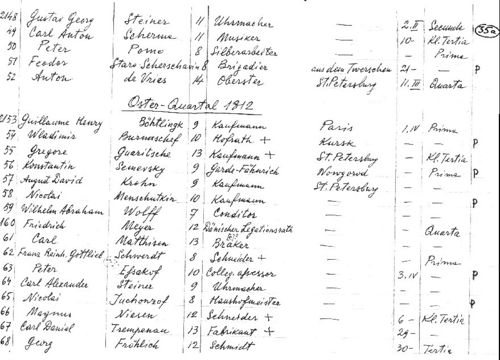 2148 Gustav Georg Steiner 11 Uhrmacher — 2.II Secunda
49 Carl Anton Scherma 11 Musiker — 10- Kl. Tertia 35a
50 Peter Pomo 8 Silberarbeiter — — Prima
51 Feodor Staro Scherschavin 8 Brigadier aus dem Twerschen 21- — P
52 Anton de Vries 14 Oberster St. Petersburg 11.III Quarta
Oster-Quartal 1812
2153 Guillaume Henry Böhtlingk 9 Kaufmann Paris 1.IV Prima
54 Wladimir Burnaschef 10 Hofrath + Kursk — — P
55 Gregore Guaritsche 13 Kaufmann + St. Petersburg — Kl. Tertia
56 Konstantin Semevsky 9 Garde-Fähnrich Nowgorod — Prima P
57 August David Krohn 9 Kaufmann St. Petersburg — —
58 Nicolai Menschutkin 10 Kaufmann — — — P
59 Wilhelm Abraham Wolff 7 Conditor — — —
160 Friedrich Meyer 12 Dänischer Legationsrath — — Quarta
61 Carl Matthisen 13 Bräker — — —
62 Franz Reinh. Gottlieb Schwerdt 8 Schneider + — — Prima
63 Peter Efsakof 10 Colleg. assessor — 3.IV — P
64 Carl Alexander Steiner 9 Uhrmacher — — —
65 Nicolai Juchonzof 8 Haushofmeister — — — P
66 Magnus Niesen 12 Schneider + — 6- Kl. Tertia
67 Carl Daniel Trempenau 13 Fabrikant + — 29- —
68 Georg Fröhlich 12 Schmidt — 30- Tertia